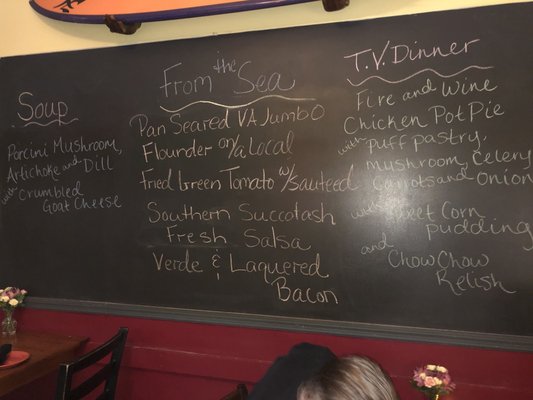 Soup
Porcini Mushroom,
Artichoke and Dill
with Crumbled
Goat Cheese
From the Sea
Pan Seared VA Jumbo
Flounder on/a Local
Fried Green Tomato w/sauteed
Southern Succatash
Fresh Salsa
Verde & Laquered
Bacon
T.V. Dinner
Fire and Wine
Chicken Pot Pie
with Puff pastry,
mushroom, Celery
Carrots and Onion
with Sweet Corn
pudding,
and Chow Chow
Relish